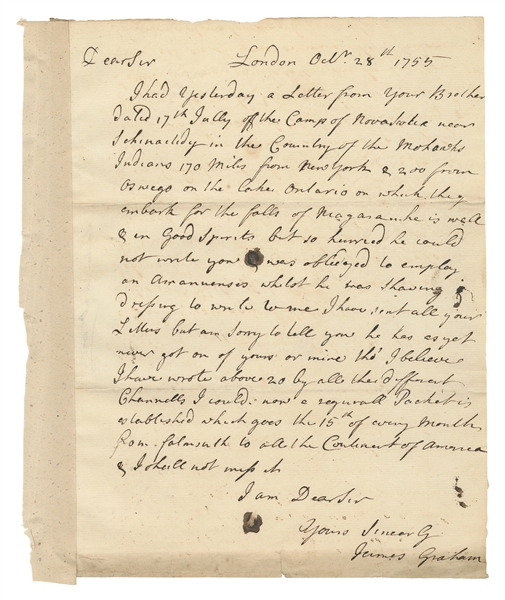 Dear Sir London Octr. 28th 1755
I had Yesterday a Letter from Your Brother
dated 17th July of the Camp of Novascotia near
Schinactidy in the Country of the Mohawks
Indians 170 Miles from New York & 200 from
Oswego on the Lake Ontario on which they
embark for the falls of Niagara he is well
& in Good Spirits but so hurried he could
not write you & was obliedged to employ
an Amanuensis whilst he was Shaving &
dressing to write to me I have sent all your
Letters but am Sorry to tell you he has as yet
never got on of yours or mine tho' I believe
I have wrote above 20 by all the different
Channells I could. now a regular Packet is
established which goes the 15th of every Month
from falmouth to all the Continent of America
& I shall not miss it
I am Dear Sir
Yours Sincerly
James Graham